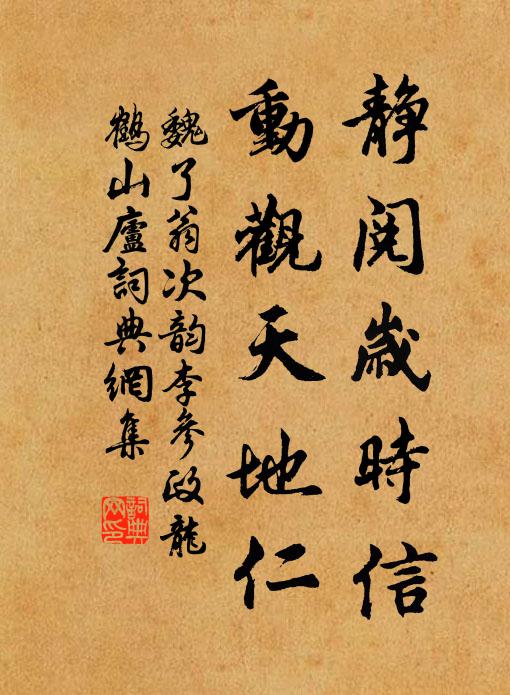 静阅歳時信
動觀天地仁
魏了翁次韵李參政龍
鶴山廬詞典網集
詞典